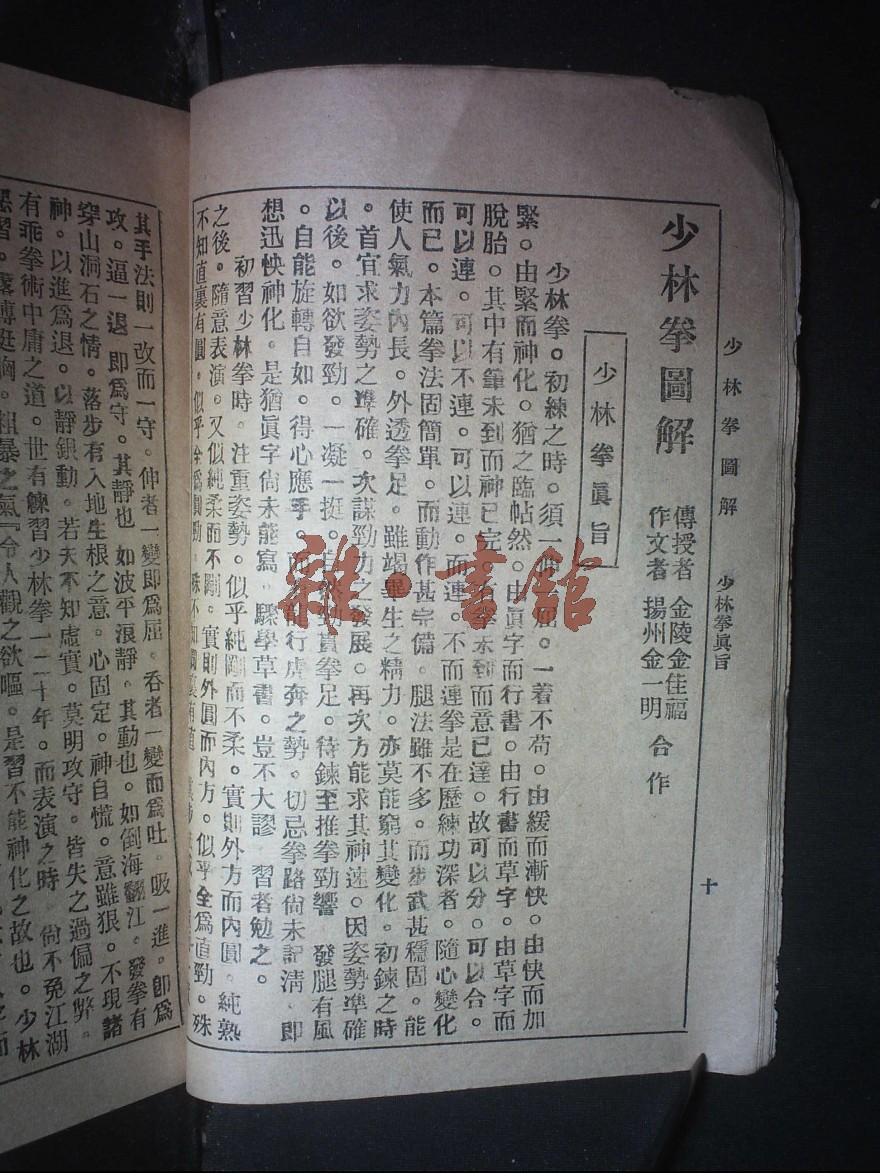 少林拳圖解　少林拳眞旨　十
少林拳圖解
傳授者　金陵金佳福
作文者　揚州金一明
合作
少林拳眞旨
少林拳。初練之時。須一伸一屈。一着不苟。由緩而漸快。由快而加
緊。由緊而神化。猶之臨帖然。由眞字而行書。由行書而草字。由草字而
脫胎。其中有筆未到而神已完。拳未到而意已達。故可以分。可以合。
可以連。可以不連。可以連。而連。不而連拳是在歷練功深者。隨心變化
而已。本篇拳法固簡單。而動作甚完備。腿法雖不多。而步武甚穩固。能
使人氣力內長。外透拳足。雖竭畢生之精力。亦莫能窮其變化。初鍊之時
。首宜求姿勢之準確。次謀勁力之發展。再次方能求其神速。因姿勢準確
以後。如欲發勁。一凝一挺。自勁貫拳足。待鍊至推拳勁響　發腿有風
。自能旋轉自如。得心應手。而行虎奔之勢。切忌拳路尙未記淸　卽
想迅快神化。是猶眞字尙未能寫。驟學草書。豈不大謬　習者勉之。
初習少林拳時。注重姿勢。似乎純剛而不柔。實則外方而內圓。純熟
之後。隨意表演。又似純柔而不剛。實則外圓而內方。似乎全爲直勁。殊
不知直裏有圓。似乎全爲圓勁。殊不知圓裏有直
其手法則一改而一守。伸者一變卽爲屈。吞者一變而爲吐。吸一進。卽爲
攻。逼一退　卽爲守。其靜也　如波平浪靜。其動也。如倒海翻江。發拳有
穿山洞石之情。落步有入地生根之意。心固定。神自慌。意雖狠。不現諸
神。以進爲退。以靜銀動。若夫不知虛實。莫明攻守。皆失之過偏之弊。
有乖拳術中庸之道。世有練習少林拳一二十年。而表演之時　尙不免江湖
惡習。露膊挺胸。粗暴之氣『令人觀之欲嘔。是習不能神化之故也。少林
雜·書館